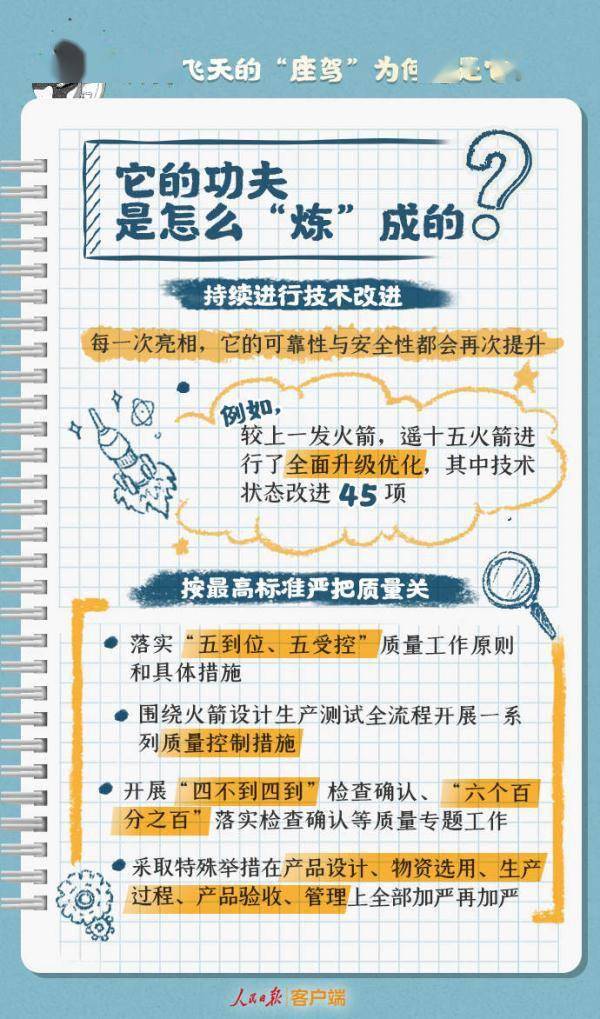 飞天的“座驾”为
它的功夫
是怎么“炼”成的？
持续进行技术改进
每一次亮相，它的可靠性与安全性都会再次提升
例如，
较上一发火箭，遥十五火箭进
行了全面升级优化，其中技术
状态改进 45 项
按最高标准严把质量关
落实“五到位、五受控”质量工作原则
和具体措施
围绕火箭设计生产测试全流程开展一系
列质量控制措施
开展“四不到四到”检查确认、“六个百
分之百”落实检查确认等质量专题工作
采取特殊举措在产品设计、物资选用、生产
过程、产品验收、管理上全部加严再加严
人民日报 客户端